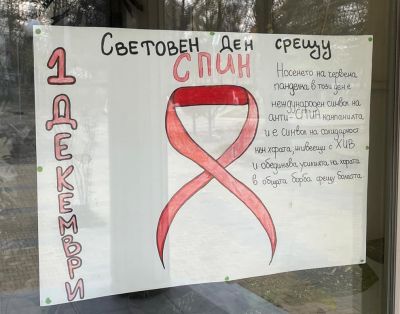 СВЕТОВЕН ДЕН СРЕЩУ
СПИН
1 ДЕКЕМВРИ
Носенето на червена
панделка в този ден е
международен символ на
анти-СПИН кампанията
и е символ на солидарност
към хората, живеещи с ХИВ
и обединява усилията на хората
в общата борба срещу болестта.